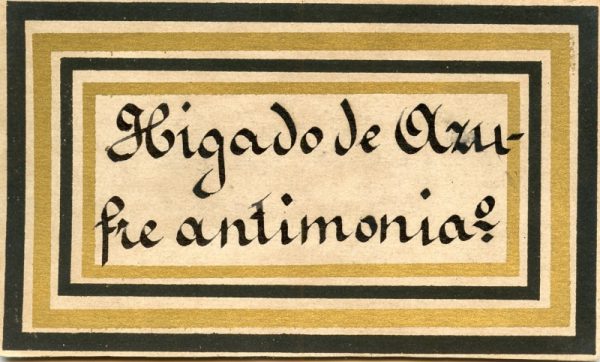 Higado de Azu-
fre antimoniaº